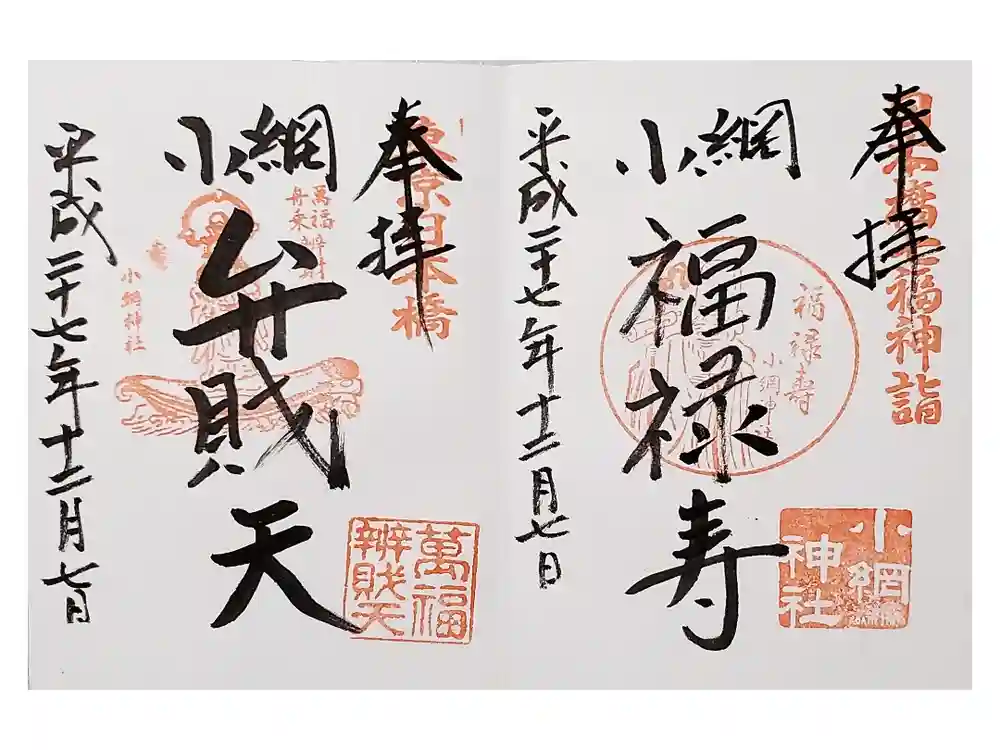 奉拝
日本橋七福神詣
小網
福禄寿
福禄寿
小網神社
平成二十七年十二月七日
小網神社
奉拝
東京日本橋
小網
弁財天
萬福
舟乗弁財天
小網神社
平成二十七年十二月七日
萬福
辨財天